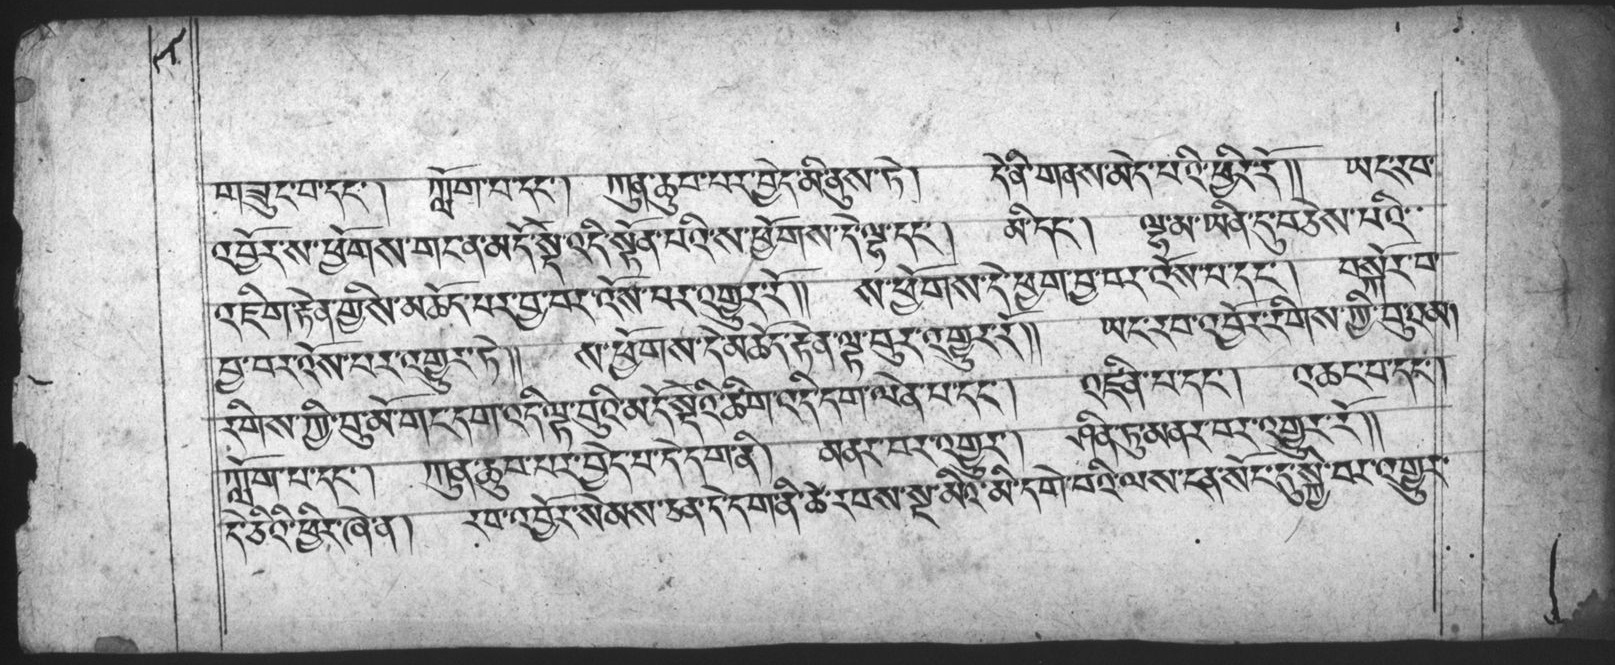 གཟུང་བ་དང་། ཀློག་པ་དང་། ཀུན་ཆུབ་པར་བྱེད་མི་ནུས་ཏེ། དེ་ནི་གནས་མེད་པའི་ཕྱིར་རོ།། ཡང་རབ་
འབྱོར་ས་ཕྱོགས་གང་ན་མདོ་སྡེ་འདི་སྟོན་པའི་ས་ཕྱོགས་དེ་ལྷ་དང་། མི་དང་། ལྷ་མ་ཡིན་དུ་བཅས་པའི་
འཇིག་རྟེན་གྱིས་མཆོད་པར་བྱ་བར་འོས་པར་འགྱུར་རོ།། ས་ཕྱོགས་དེ་ཕྱག་བྱ་བར་འོས་པ་དང་། བསྐོར་བ་
བྱ་བར་འོས་པར་འགྱུར་ཏེ།། ས་ཕྱོགས་དེ་མཆོད་རྟེན་ལྟ་བུར་འགྱུར་རོ།། ཡང་རབ་འབྱོར་རིགས་ཀྱི་བུའམ།
རིགས་ཀྱི་བུ་མོ་གང་དག་འདི་ལྟ་བུའི་མདོ་སྡེའི་ཚིག་འདི་དག་ལེན་པ་དང་། འཛིན་པ་དང་། འཆང་བ་དང་།
ཀློག་པ་དང་། ཀུན་ཆུབ་པར་བྱེད་པ་དེ་དག་ནི། མནར་བར་འགྱུར། ཤིན་ཏུ་མནར་བར་འགྱུར་རོ།།
དེ་ཅིའི་ཕྱིར་ཞེ་ན། རབ་འབྱོར་སེམས་ཅན་དེ་དག་ནི་ཚེ་རབས་སྔ་མའི་མི་དགེ་བའི་ལས་ངན་སོང་དུ་སྐྱེ་བར་འགྱུར་